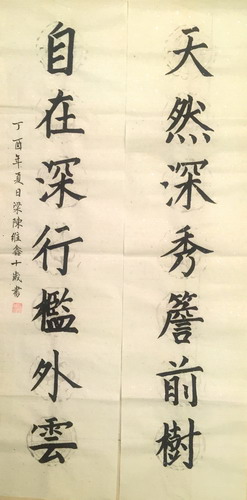 天然深秀簷前樹
自在深行檻外雲
丁酉年夏日梁陳維鑫十歲書